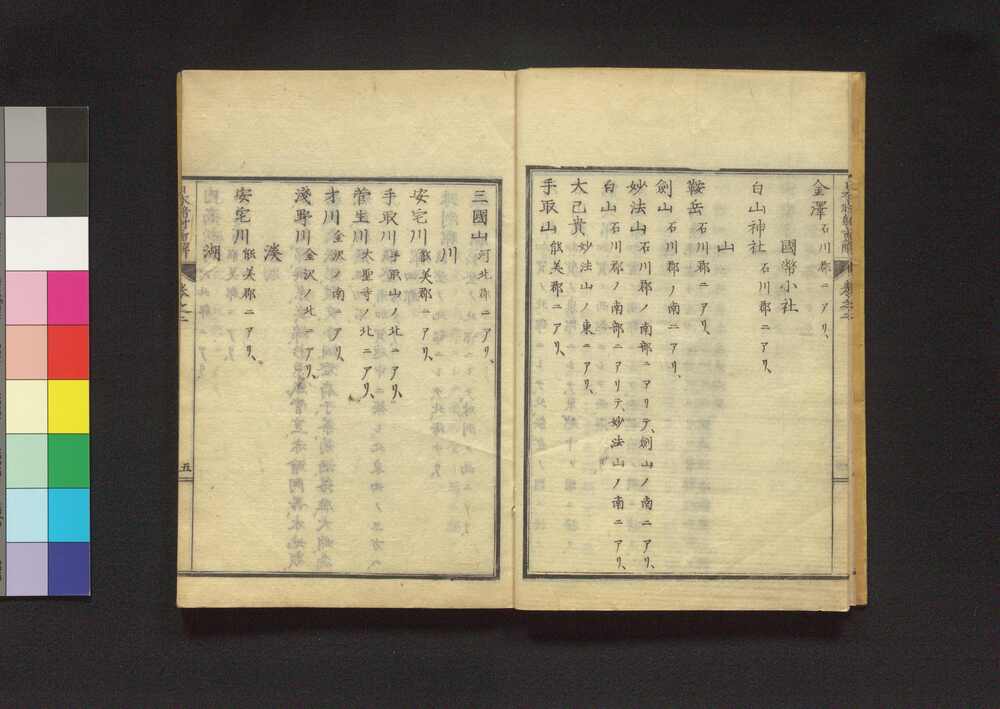 金澤 石川郡ニアリ、
國幣小社
白山神社 石川郡ニアリ、
山
鞍岳 石川郡ニアリ、
劍山 石川郡ノ南ニアリ、
妙法山 石川郡ノ南部ニアリテ、劍山ノ南ニアリ、
白山 石川郡ノ南部ニアリテ、妙法山ノ南ニアリ、
大己貴 妙法山ノ東ニアリ、
手取山 能美郡ニアリ、
三國山 河北郡ニアリ、
川
安宅川 能美郡ニアリ、
手取川 手取山ノ北ニアリ、
菅生川 大聖寺ノ北ニアリ、
才川 金沢ノ南ニアリ、
淺野川 金沢ノ北ニアリ、
湊
安宅川 能美郡ニアリ、
湖
卷之二
五